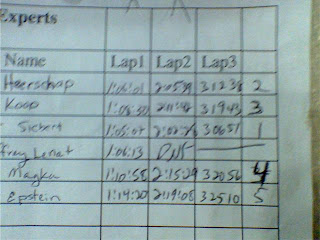 Experts
Name Lap1 Lap2 Lap3
Heerschap 1:05:01 31238 2
Koop 1:08:50 31943 3
Siebert 1:05:07 30651 1
Lenat 1:06:13 DNF
Magku 1:10:55 2:15:29 32056 4
Epstein 1:14:20 2:19:08 32510 5